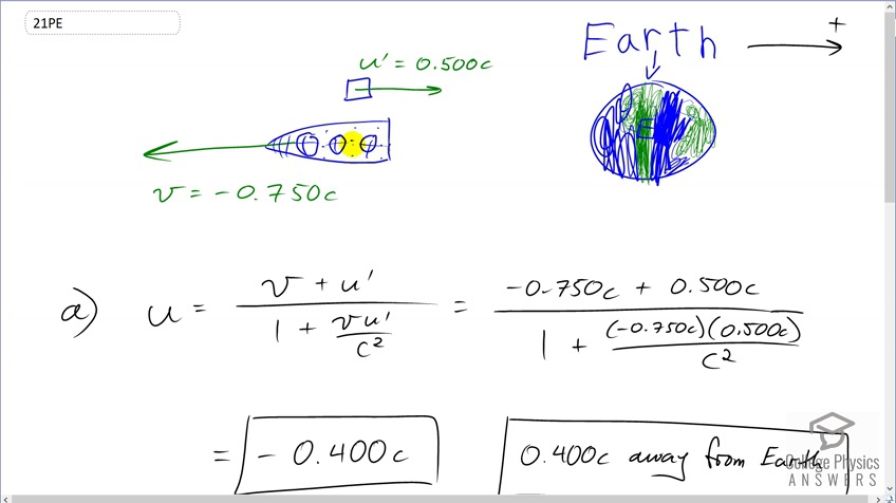 21PE
Earth
+
u' = 0.500c
v = -0.750c
a) u = (v + u')/(1 + vu'/c²) = (-0.750c + 0.500c)/(1 + (-0.750c)(0.500c)/c²)
= -0.400c
0.400c away from Earth
College Physics
ANSWERS